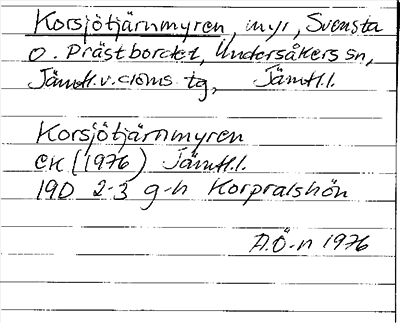 Korsjötjärnmyren, myr, Svensta
o. Prästbordet, Undersåkers sn,
Jämtl. v. doms. tg, Jämtl. l.
Korsjötjärnmyren
EK (1976) Jämtl. l.
19D 2-3 g-h Korpralshön
A.Ö-n 1976